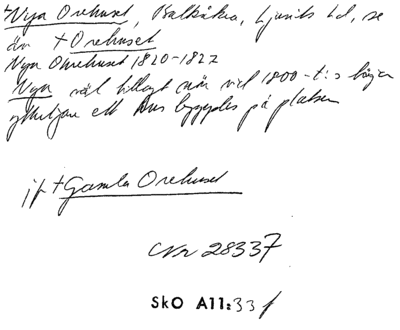 +Nya Orehuset, Balkåkra, Ljunits hd, se
även +Orehuset
Nya Orrehuset 1820-1827
Nya väl tillagt när vid 1800-t:s början
ett hus byggdes på platsen
jf +Gamla Orehuset
Nr 28337
SkO A11:33 f